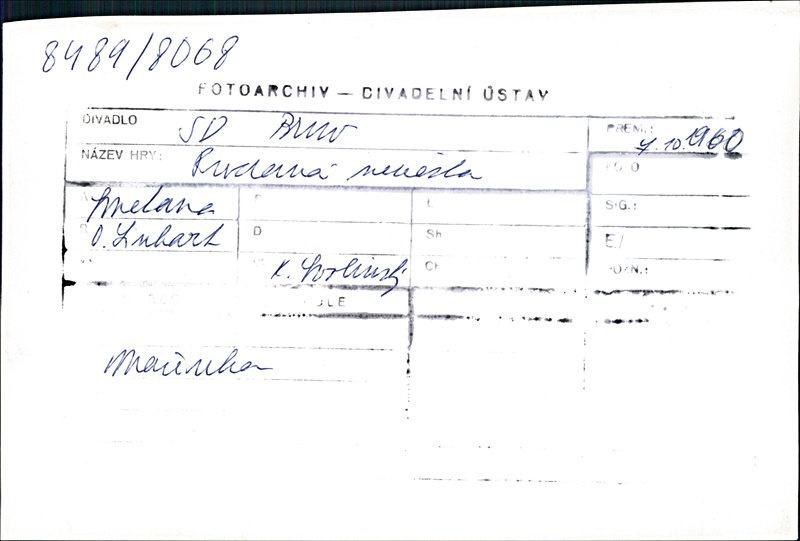 8489/8068
FOTOARCHIV — DIVADELNÍ ÚSTAV
DIVADLO SD Brno PREM.: 7.10.1960
NÁZEV HRY: Prodaná nevěsta
Smetana SIG.:
O. Linhart D Sh E/
K. Svolinský Ch POZN.:
Mařenka